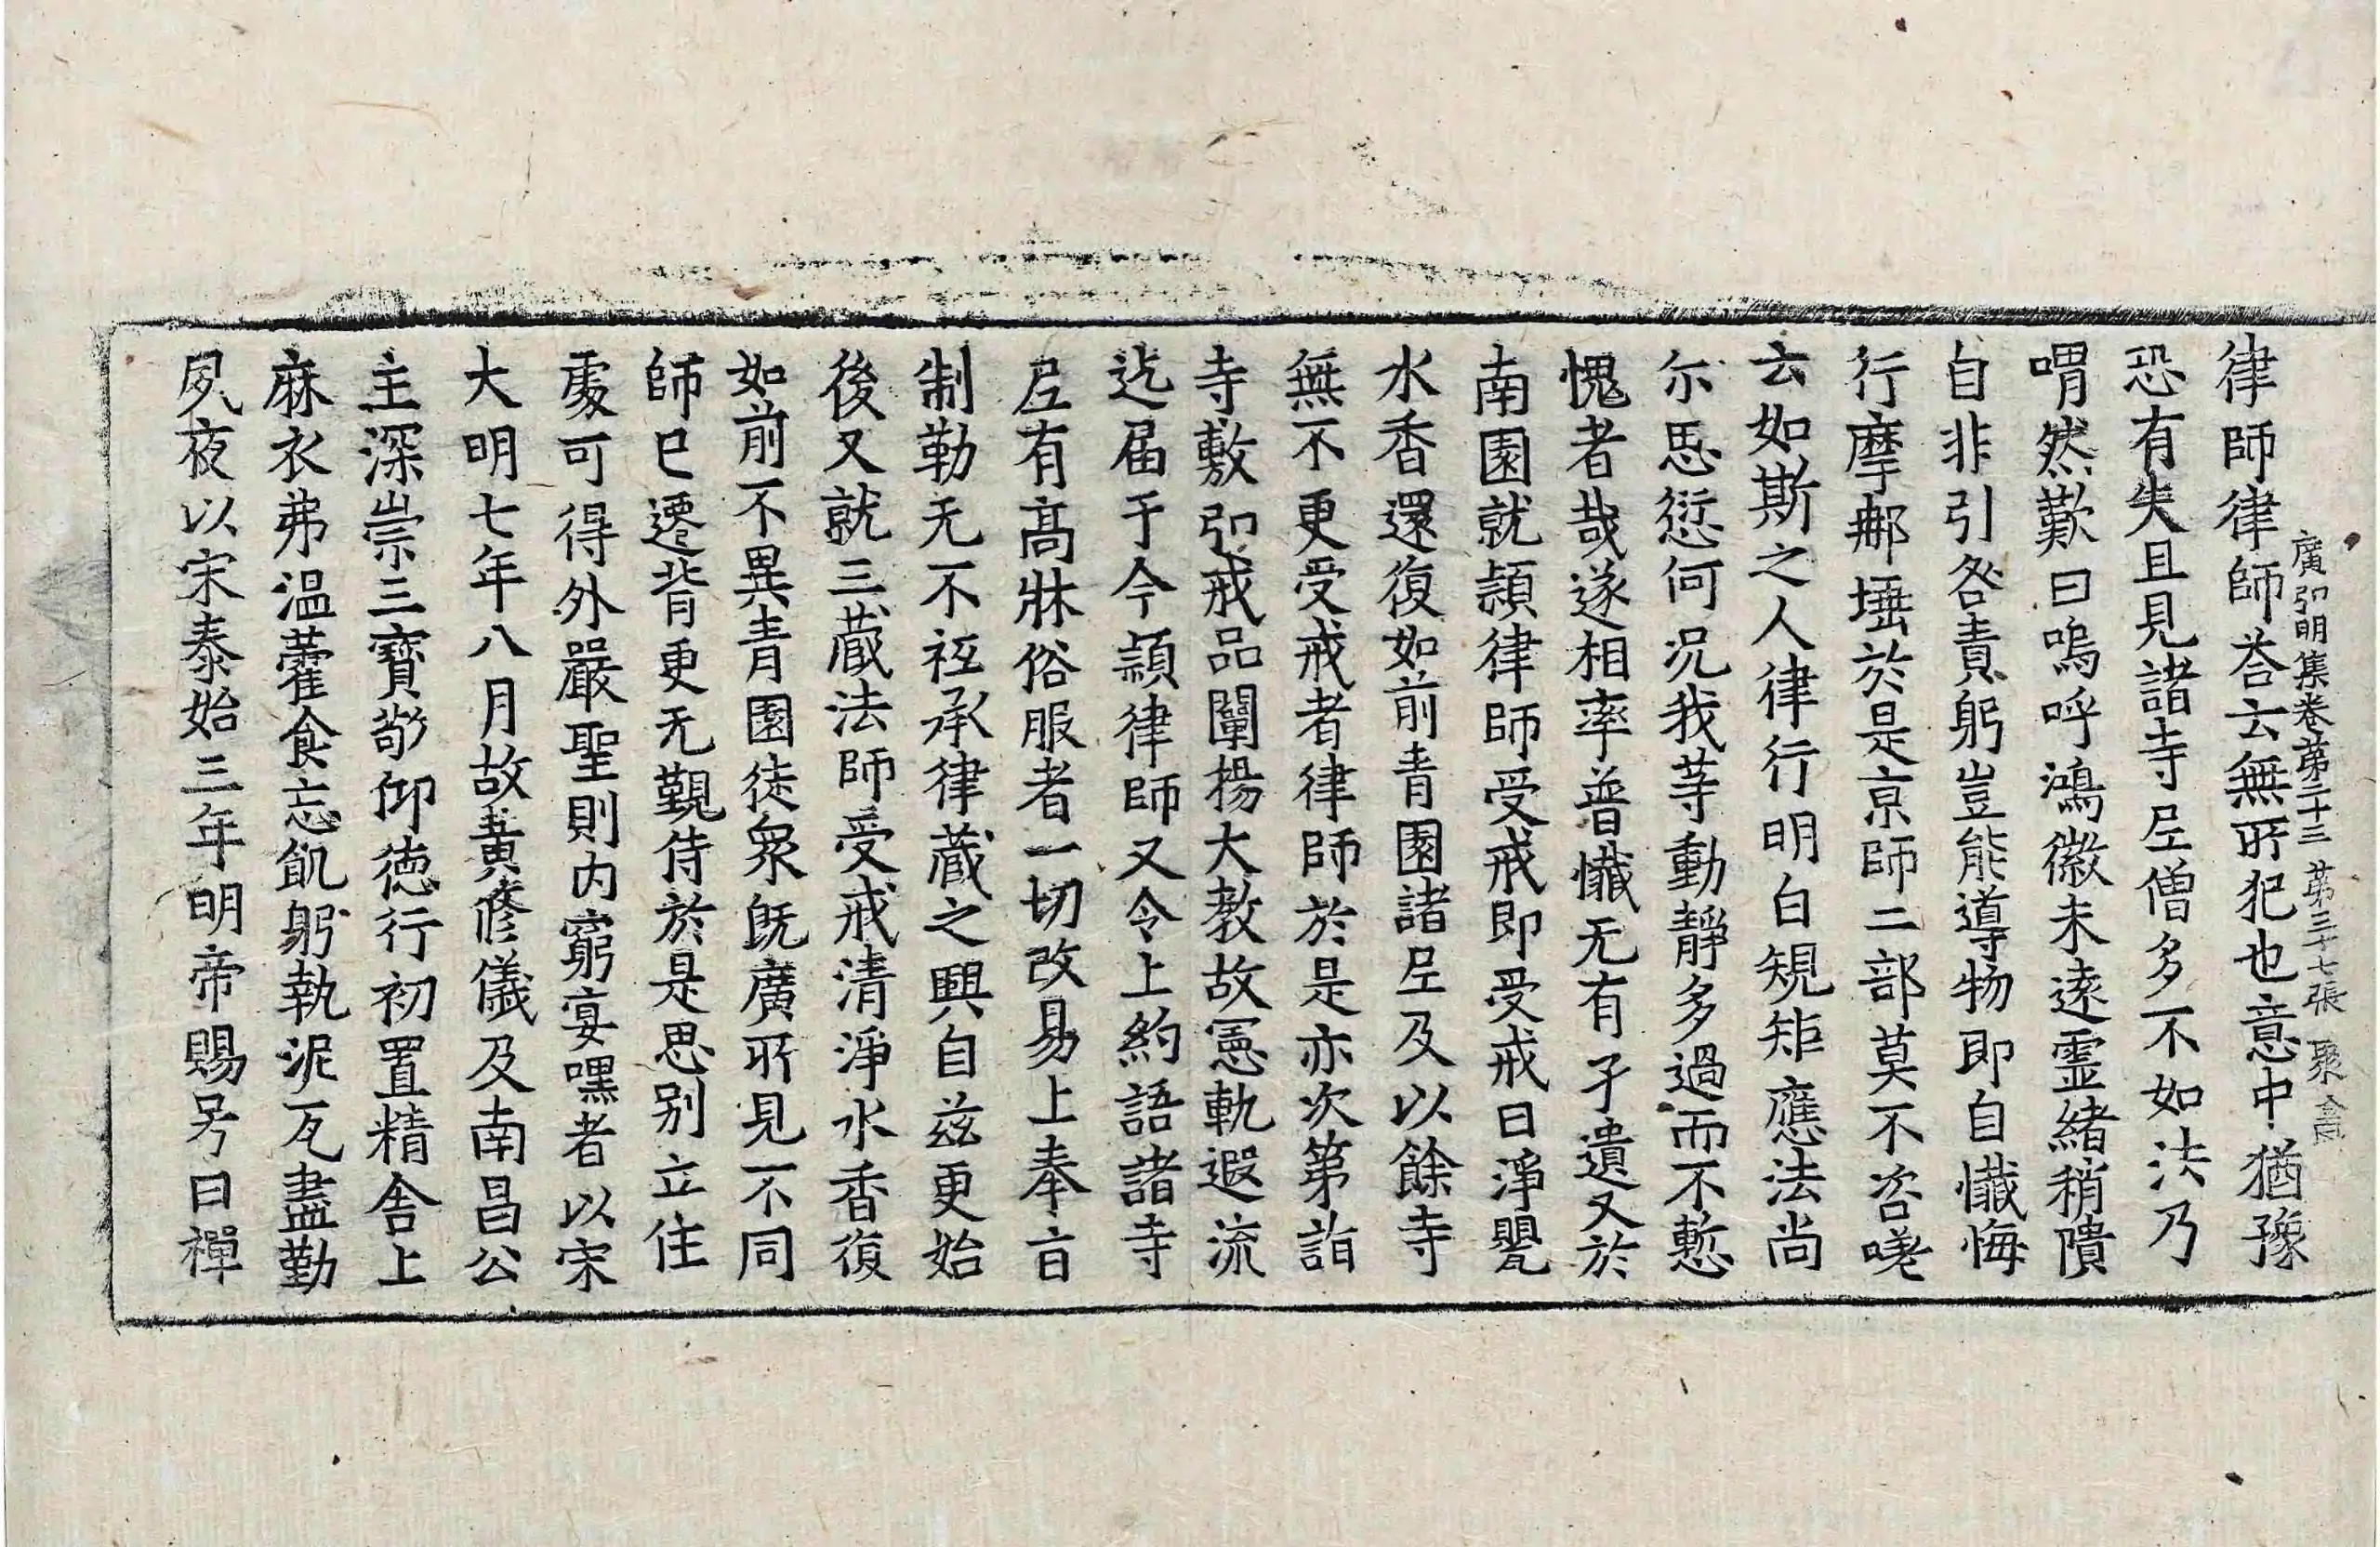 律師律師荅云無所犯也意中猶豫
廣弘明集卷第二十三 第三十七張 聚禽
恐有失且見諸寺尼僧多不如法乃
喟然歎曰嗚呼鴻徽未遠靈緒稍隤
自非引咎責躬豈能導物即自懺悔
行摩郍埵於是京師二部莫不咨嗟
云如斯之人律行明白規矩應法尚
尒思愆何況我等動靜多過而不慙
愧者哉遂相率普懺无有孑遺又於
南園就頴律師受戒即受戒日淨甖
水香還復如前青園諸尼及以餘寺
無不更受戒者律師於是亦次第詣
寺敷弘戒品闡揚大教故憲軌遐流
迄届于今頴律師又令上約語諸寺
尼有高牀俗服者一切改易上奉旨
制勒无不祗承律藏之興自茲更始
後又就三藏法師受戒清淨水香復
如前不異青園徒衆旣廣所見不同
師已遷背更无覲侍於是思别立住
處可得外嚴聖則内窮宴嘿者以宋
大明七年八月故黃修儀及南昌公
主深崇三寶敬仰德行初置精舍上
麻衣弗溫藿食忘飢躬執泥瓦盡勤
夙夜以宋泰始三年明帝賜号曰禪